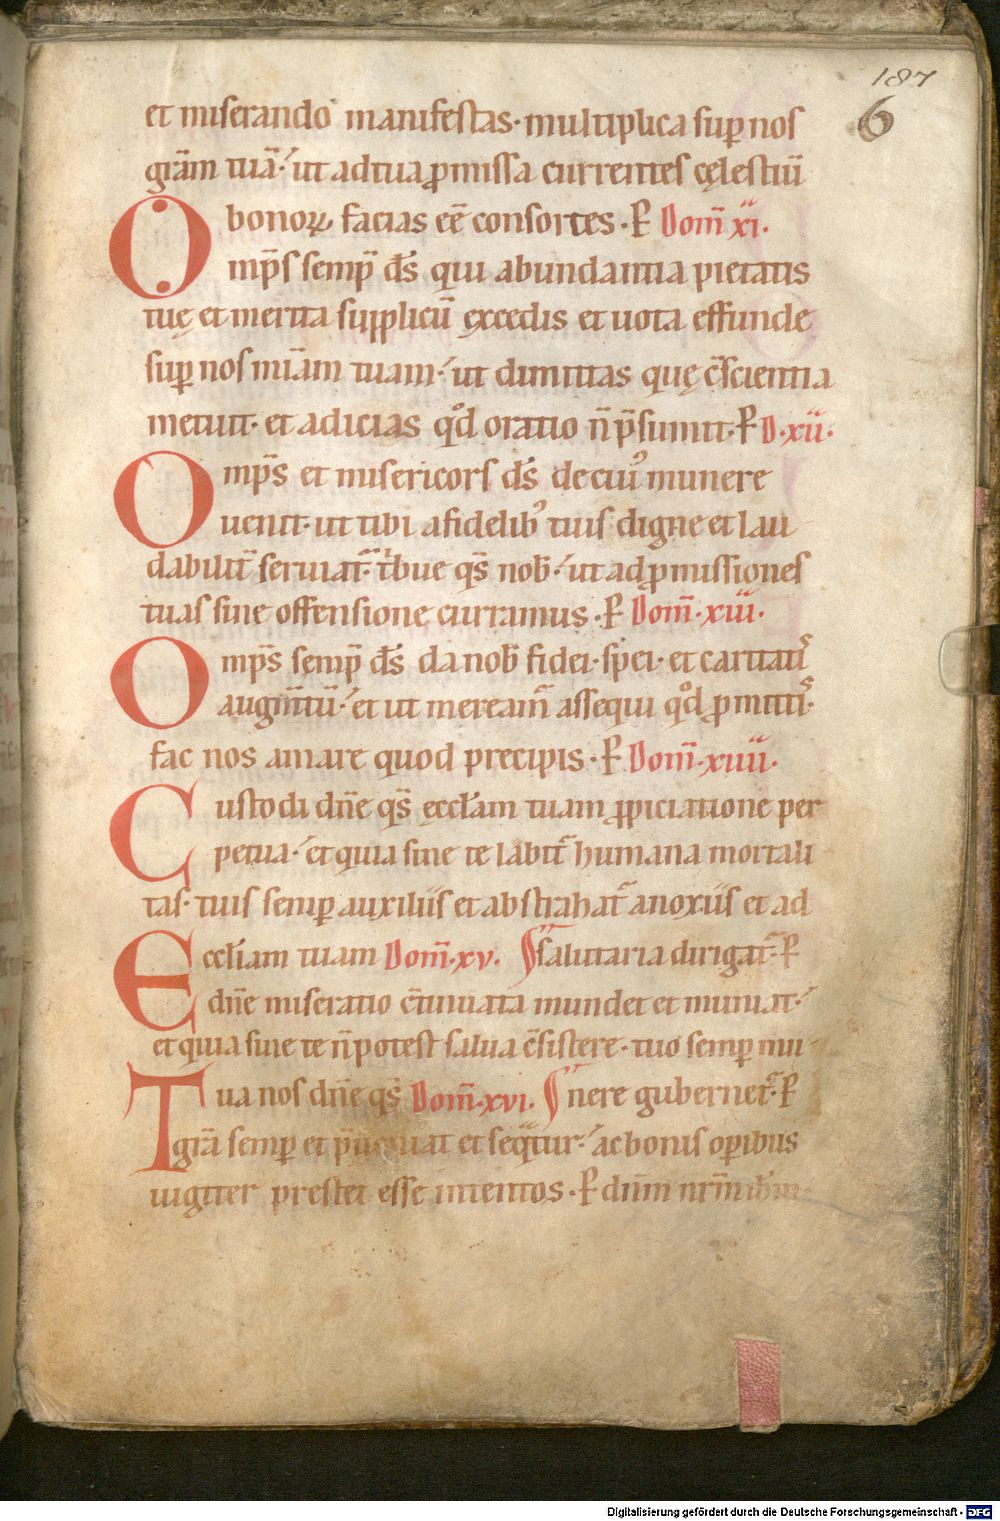 187
6
et miserando manifestas· multiplica sup̄ nos
grām tuā·́ ut ad tua ꝓmissa currentes cęlestiū
bonoꝝ facias eē consortes· P̄ Dom̄ xi·
Omp̄s semp̄ ds̄ qui abundantia pietatis
tuę et merita supplicū excedis et uota effunde
sup̄ nos mīam tuam·́ ut dimittas quę c̄scientia
metuit· et adicias qd̊ oratio n̄ p̄sumit· P̄ D·xii·
Omp̄s et misericors ds̄ de cui᾽ munere
uenit· ut tibi a fidelib᾽ tuis digne et lau
dabilit̄ seruiat᷑· t᷑bue qs̄ nob̄·́ ut ad ꝓmissiones
tuas sine offensione curramus· P̄ Dom̄·xiii·
Omp̄s semp̄ ds̄ da nob̄ fidei· spei· et caritatiˢ
augm̄tū·́ et ut meream̄ assequi qd̊ ꝓmittiˢ·
fac nos amare quod precipis· P̄ Dom̄·xiiii·
Custodi dn̄e qs̄ ęccl̄am tuam ꝓpiciatione per
petua·́ et quia sine te labit᷑ humana mortali
tas· tuis semp̄ auxiliis et abstrahat᷑ a noxiis et ad
Eccl̄iam tuam Dom̄·xv· salutaria dirigat᷑· P̄
dn̄e miseratio c̄tinuata mundet et muniat·́
et quia sine te n̄ potest salua c̄sistere· tuo semp̄ mu-
Tua nos dn̄e qs̄ Dom̄·xvi· nere gubernet᷑· P̄
gr̄a semp̄ et p̄ueniat et seq̄tur·́ ac bonis oꝑibus
iugiter prestet esse intentos· P̄ dn̄m nr̄m
Digitalisierung gefördert durch die Deutsche Forschungsgemeinschaft - DFG